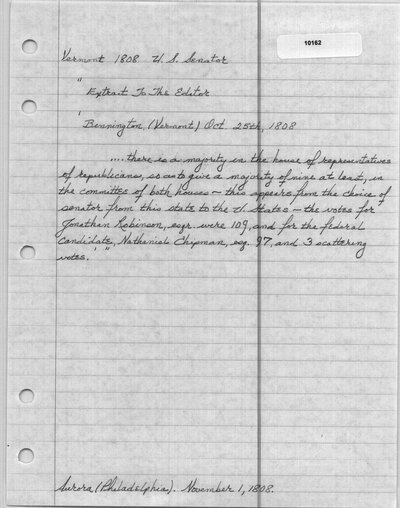 10162
Vermont 1808 U. S. Senator
"
Extract To The Editor
'
Bennington (Vermont) Oct. 25th, 1808
....there is a majority in the house of representatives
of republicans, so as to give a majority of nine at least, in
the committee of both houses - this appears from the choice of
senator from this state to the U. States - the votes for
Jonathan Robinson, esqr. were 109, and for the federal
candidate, Nathaniel Chipman, esq. 97, and 3 scattering
votes. ' "
Aurora (Philadelphia). November 1, 1808.